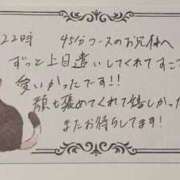 22時 45分コースのお兄様へ
ずっと上目遣いしてくれてすご
愛いかったです!!
顔も褒めてくれて嬉しかっ
またお待ちしてます!